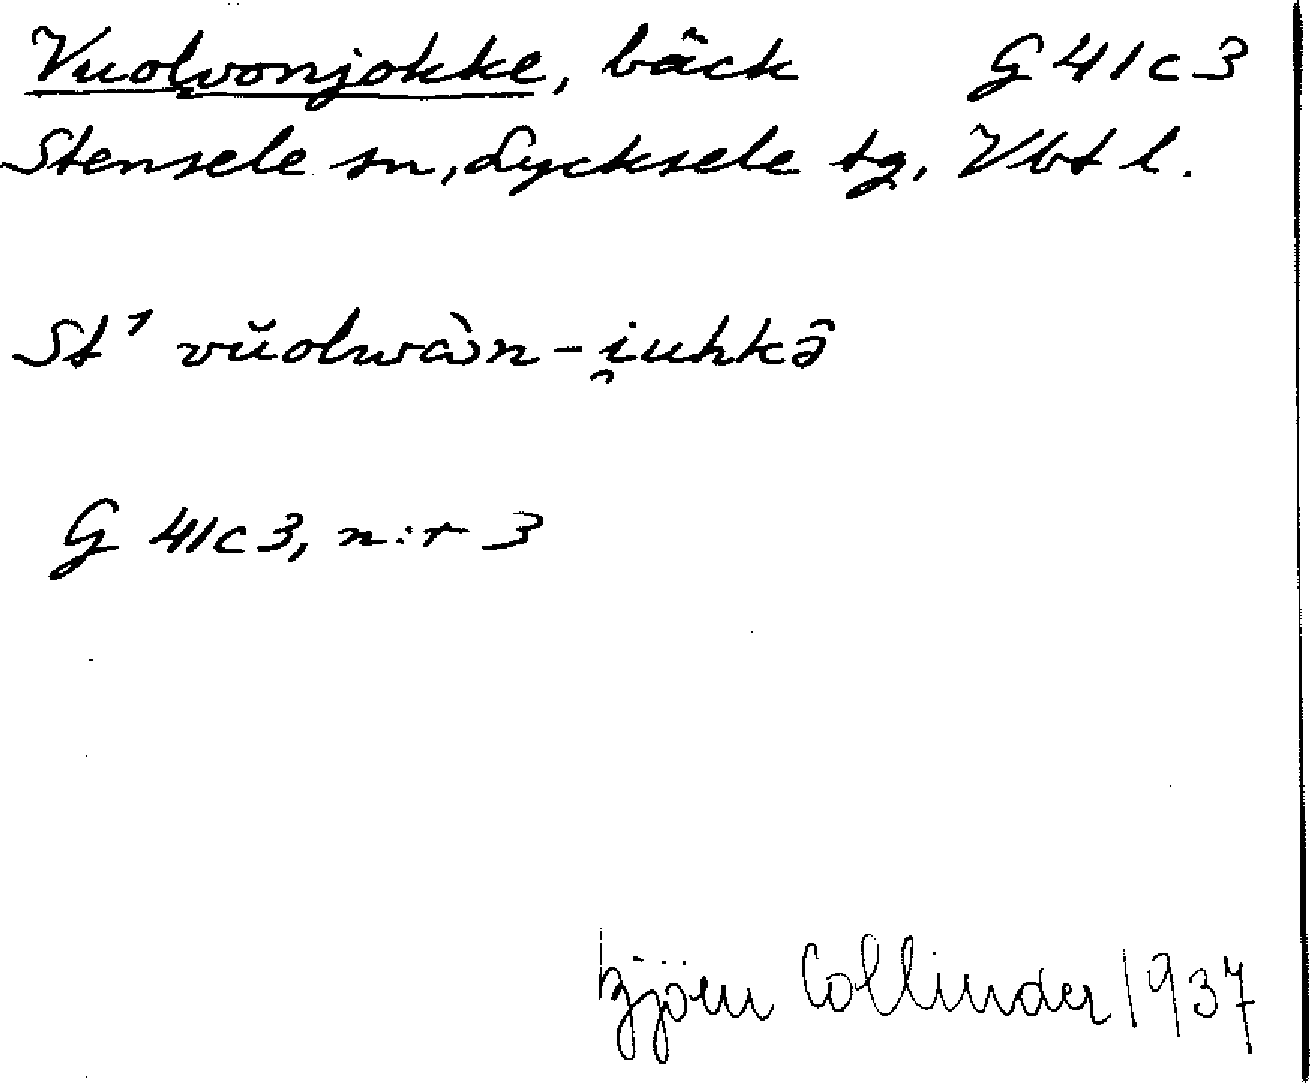 Vuolvonjokke, bäck G 41 c 3
Stensele sn, Lycksele tg, Vbt l.
St¹ vŭolwàn-i̯uhkə̂
G 41 c 3, n:r 3
Björn Collinder 1937